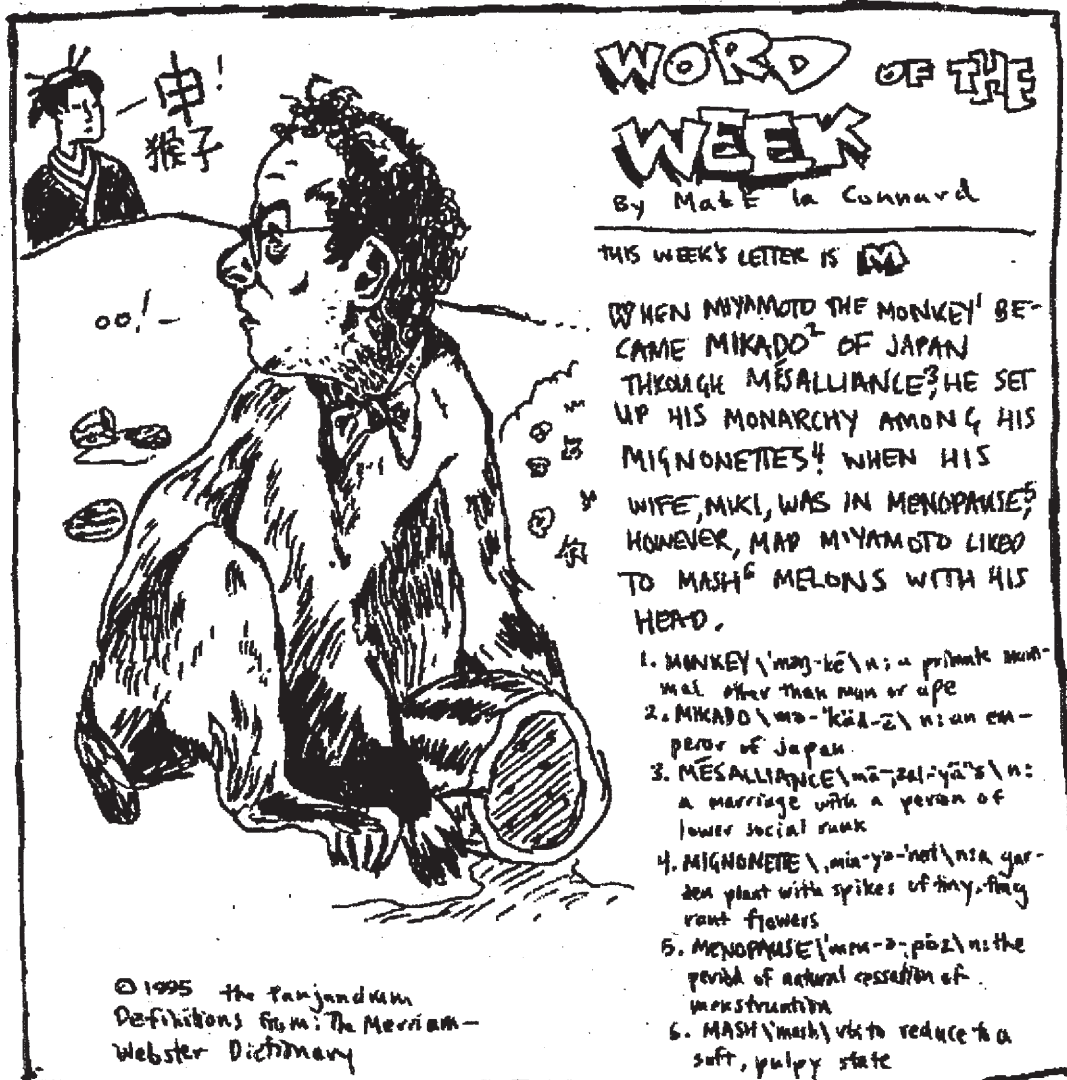 申!
猴子
oo!
WORD OF THE
WEEK
By Mate la Connard
THIS WEEK'S LETTER IS M
WHEN MIYAMOTO THE MONKEY¹ BE-
CAME MIKADO² OF JAPAN
THROUGH MÉSALLIANCE³, HE SET
UP HIS MONARCHY AMONG HIS
MIGNONETTES⁴. WHEN HIS
WIFE, MIKI, WAS IN MENOPAUSE⁵,
HOWEVER, MAD MIYAMOTO LIKED
TO MASH⁶ MELONS WITH HIS
HEAD.
1. MONKEY \'məŋ-kē\ n: a primate mam-
mal other than man or ape
2. MIKADO \mə-'käd-ō\ n: an em-
peror of japan
3. MÉSALLIANCE \mā-,zal-'yäⁿs\ n:
a marriage with a person of
lower social rank
4. MIGNONETTE \,min-yə-'net\ n: a gar-
den plant with spikes of tiny, frag
rant flowers
5. MENOPAUSE \'men-ə-,pȯz\ n: the
period of natural cessation of
menstruation
6. MASH \'mash\ vb: to reduce to a
soft, pulpy state
© 1995 the Panjandrum
Definitions from: The Merriam-
Webster Dictionary